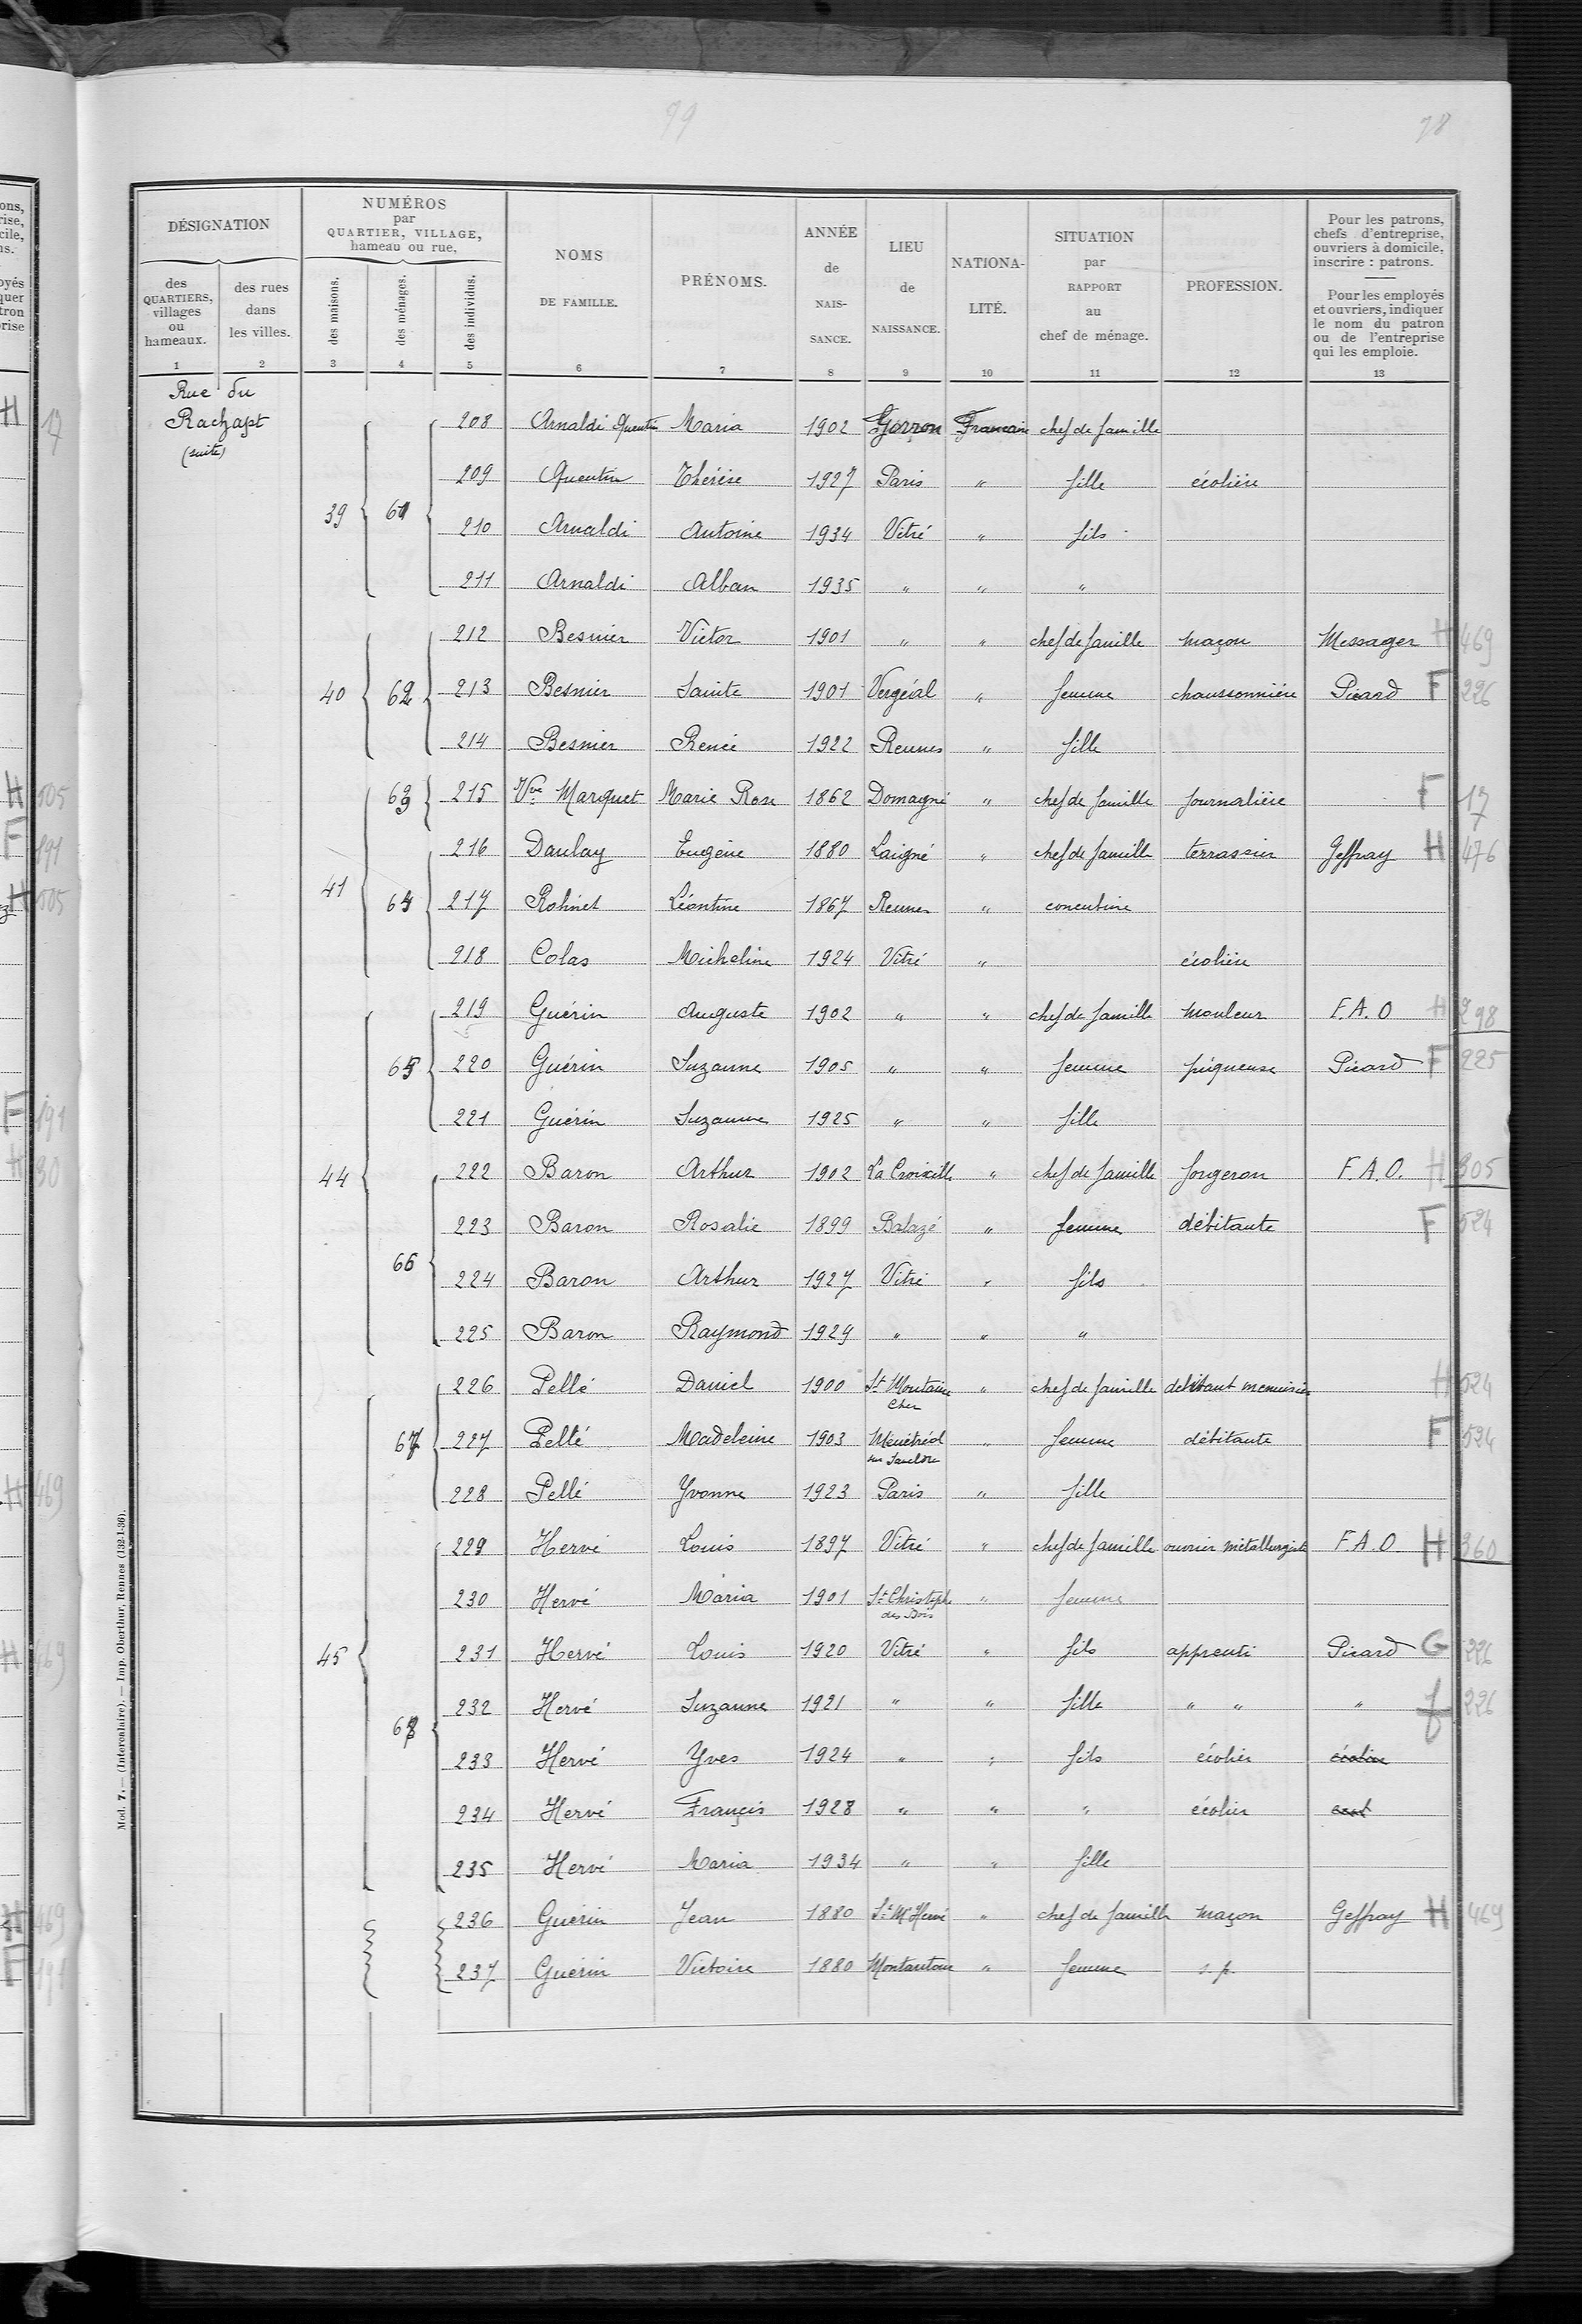 99
78
DÉSIGNATION
des QUARTIERS, villages ou hameaux.
des rues dans les villes.
NUMÉROS par QUARTIER, VILLAGE, hameau ou rue,
des maisons.
des ménages.
des individus.
NOMS DE FAMILLE.
PRÉNOMS.
ANNÉE de NAIS-SANCE.
LIEU de NAISSANCE.
NATIONA-LITÉ.
SITUATION par RAPPORT au chef de ménage.
PROFESSION.
Pour les patrons, chefs d'entreprise, ouvriers à domicile, inscrire : patrons.
Pour les employés et ouvriers, indiquer le nom du patron ou de l'entreprise qui les emploie.
1 2 3 4 5 6 7 8 9 10 11 12 13
Rue du
Rachapt
(suite)
208 Arnaldi Quentin Maria 1902 Gorron Francaise chef de famille
209 Quentin Thérèse 1927 Paris " fille écolière
39 61 210 Arnaldi Antoine 1934 Vitré " fils
211 Arnaldi Alban 1935 " " "
212 Besnier Victor 1901 " " chef de famille maçon Messager H 469
40 62 213 Besnier Sainte 1901 Vergéal " femme chaussonnière Picard F 226
214 Besnier Renée 1922 Rennes " fille
63 215 Vve Marquet Marie Rose 1862 Domagné " chef de famille journalière F 17
216 Daulay Eugène 1880 Laigné " chef de famille terrassier Geffray H 476
41 64 217 Rohinel Léontine 1867 Rennes " concubine
218 Colas Micheline 1924 Vitré " écolière
219 Guérin Auguste 1902 " " chef de famille mouleur F.A.O H 298
65 220 Guérin Suzanne 1905 " " femme piqueuse Picard F 225
221 Guérin Suzanne 1925 " " fille
44 222 Baron Arthur 1902 La Croixille " chef de famille forgeron F.A.O. H 305
223 Baron Rosalie 1899 Balazé " femme débitante F 524
66 224 Baron Arthur 1927 Vitré " fils
225 Baron Raymond 1929 " " "
226 Pellé Daniel 1900 St Montaine Cher " chef de famille débitant menuisier H 524
67 227 Pellé Madeleine 1903 Ménétréol sur Sauldre " femme débitante F 524
228 Pellé Yvonne 1923 Paris " fille
229 Hervé Louis 1897 Vitré " chef de famille ouvrier métallurgiste F.A.O. H 360
230 Hervé Maria 1901 St Christophe des Bois " femme
45 231 Hervé Louis 1920 Vitré " fils apprenti Picard G 226
68 232 Hervé Suzanne 1921 " " fille " " " f 226
233 Hervé Yves 1924 " " fils écolier écolier
234 Hervé Françis 1928 " " " écolier
235 Hervé Maria 1934 " " fille
236 Guérin Jean 1880 St M Hervé " chef de famille maçon Geffray H 469
237 Guérin Victoire 1880 Montautour " femme s.p.
Mod. 7. — (Intercalaire). — Imp. Oberthur, Rennes (132-1-36).